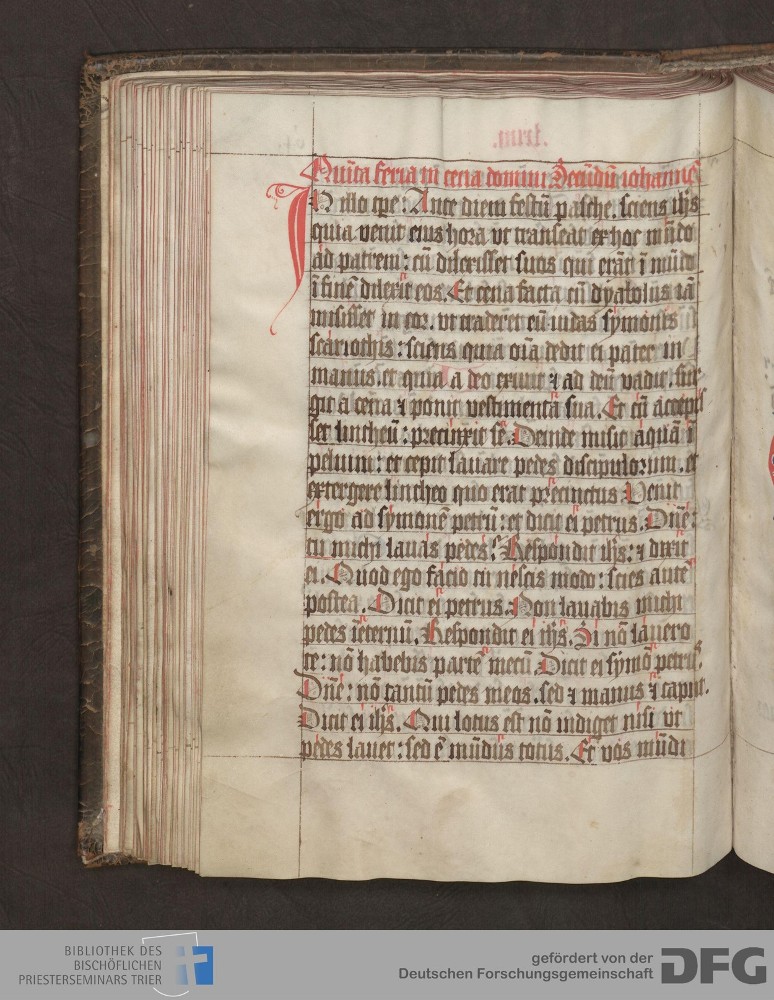 Quīta feria in cena domini Secūdū iohannē
IN illo tpe: Ante diem festū pasche. sciens ihs
quia venit eius hora vt transeat ex hoc mūdo
ad patrem: cū dilexisset suos qui erāt ī mūdo
ī finē dilexit eos. Et cena facta cū dyabolus iā
misisset in cor. vt traderet eū iudas symonis
scariothis: sciens quia oīa dedit ei pater in
manus. et quia a deo exiuit ⁊ ad deū vadit. sur
git a cena ⁊ ponit vestimenta sua. Et cū accepis
set lintheū: precinxit se. Deinde misit aquā ī
peluim: et cepit lauare pedes discipulorum. et
extergere lintheo quo erat precinctus. Venit
ergo ad symonē petrū: et dicit ei petrus. Dne:
tu michi lauas pedes? Respondit ihs: ⁊ dixit
ei. Quod ego facio tu nescis modo: scies aute
postea. Dicit ei petrus. Non lauabis michi
pedes īeternū. Respondit ei ihs. Si nō lauero
te: nō habebis partē mecū. Dicit ei symō petrus.
Dne: nō tantū pedes meos. sed ⁊ manus ⁊ caput.
Dicit ei ihs. Qui lotus est nō indiget nisi vt
pedes lauet: sed ē mūdus totus. Et vos mūdi
BIBLIOTHEK DES
BISCHÖFLICHEN
PRIESTERSEMINARS TRIER
gefördert von der
Deutschen Forschungsgemeinschaft
DFG